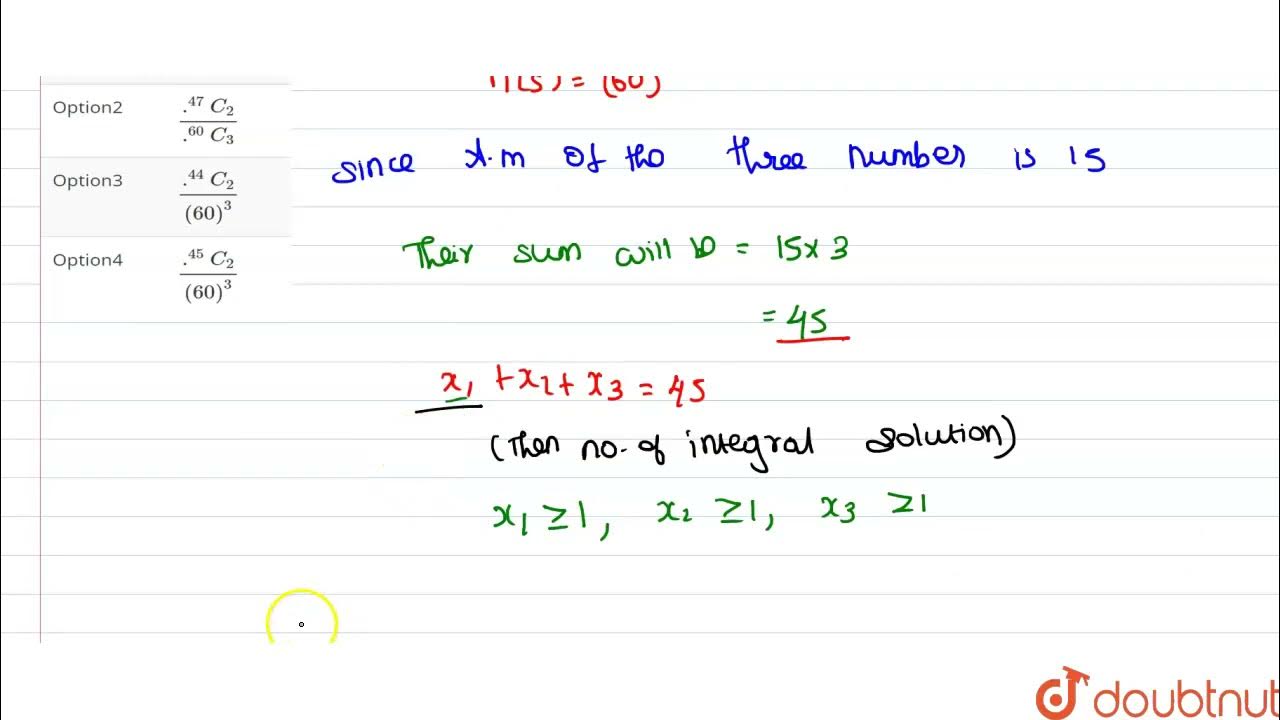 Option2 .⁴⁷ C₂ / .⁶⁰ C₃
Option3 .⁴⁴ C₂ / (60)³
Option4 .⁴⁵ C₂ / (60)³
= (60)
since A.m of the three number is 15
Their sum will be = 15×3
= 45
x₁ + x₂ + x₃ = 45
(Then no. of integral solution)
x₁ ≥ 1, x₂ ≥ 1, x₃ ≥ 1
doubtnut